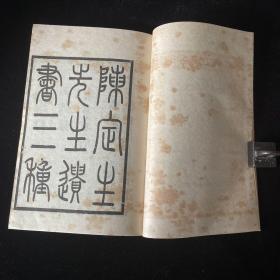 陳定生
先生遺
書三種